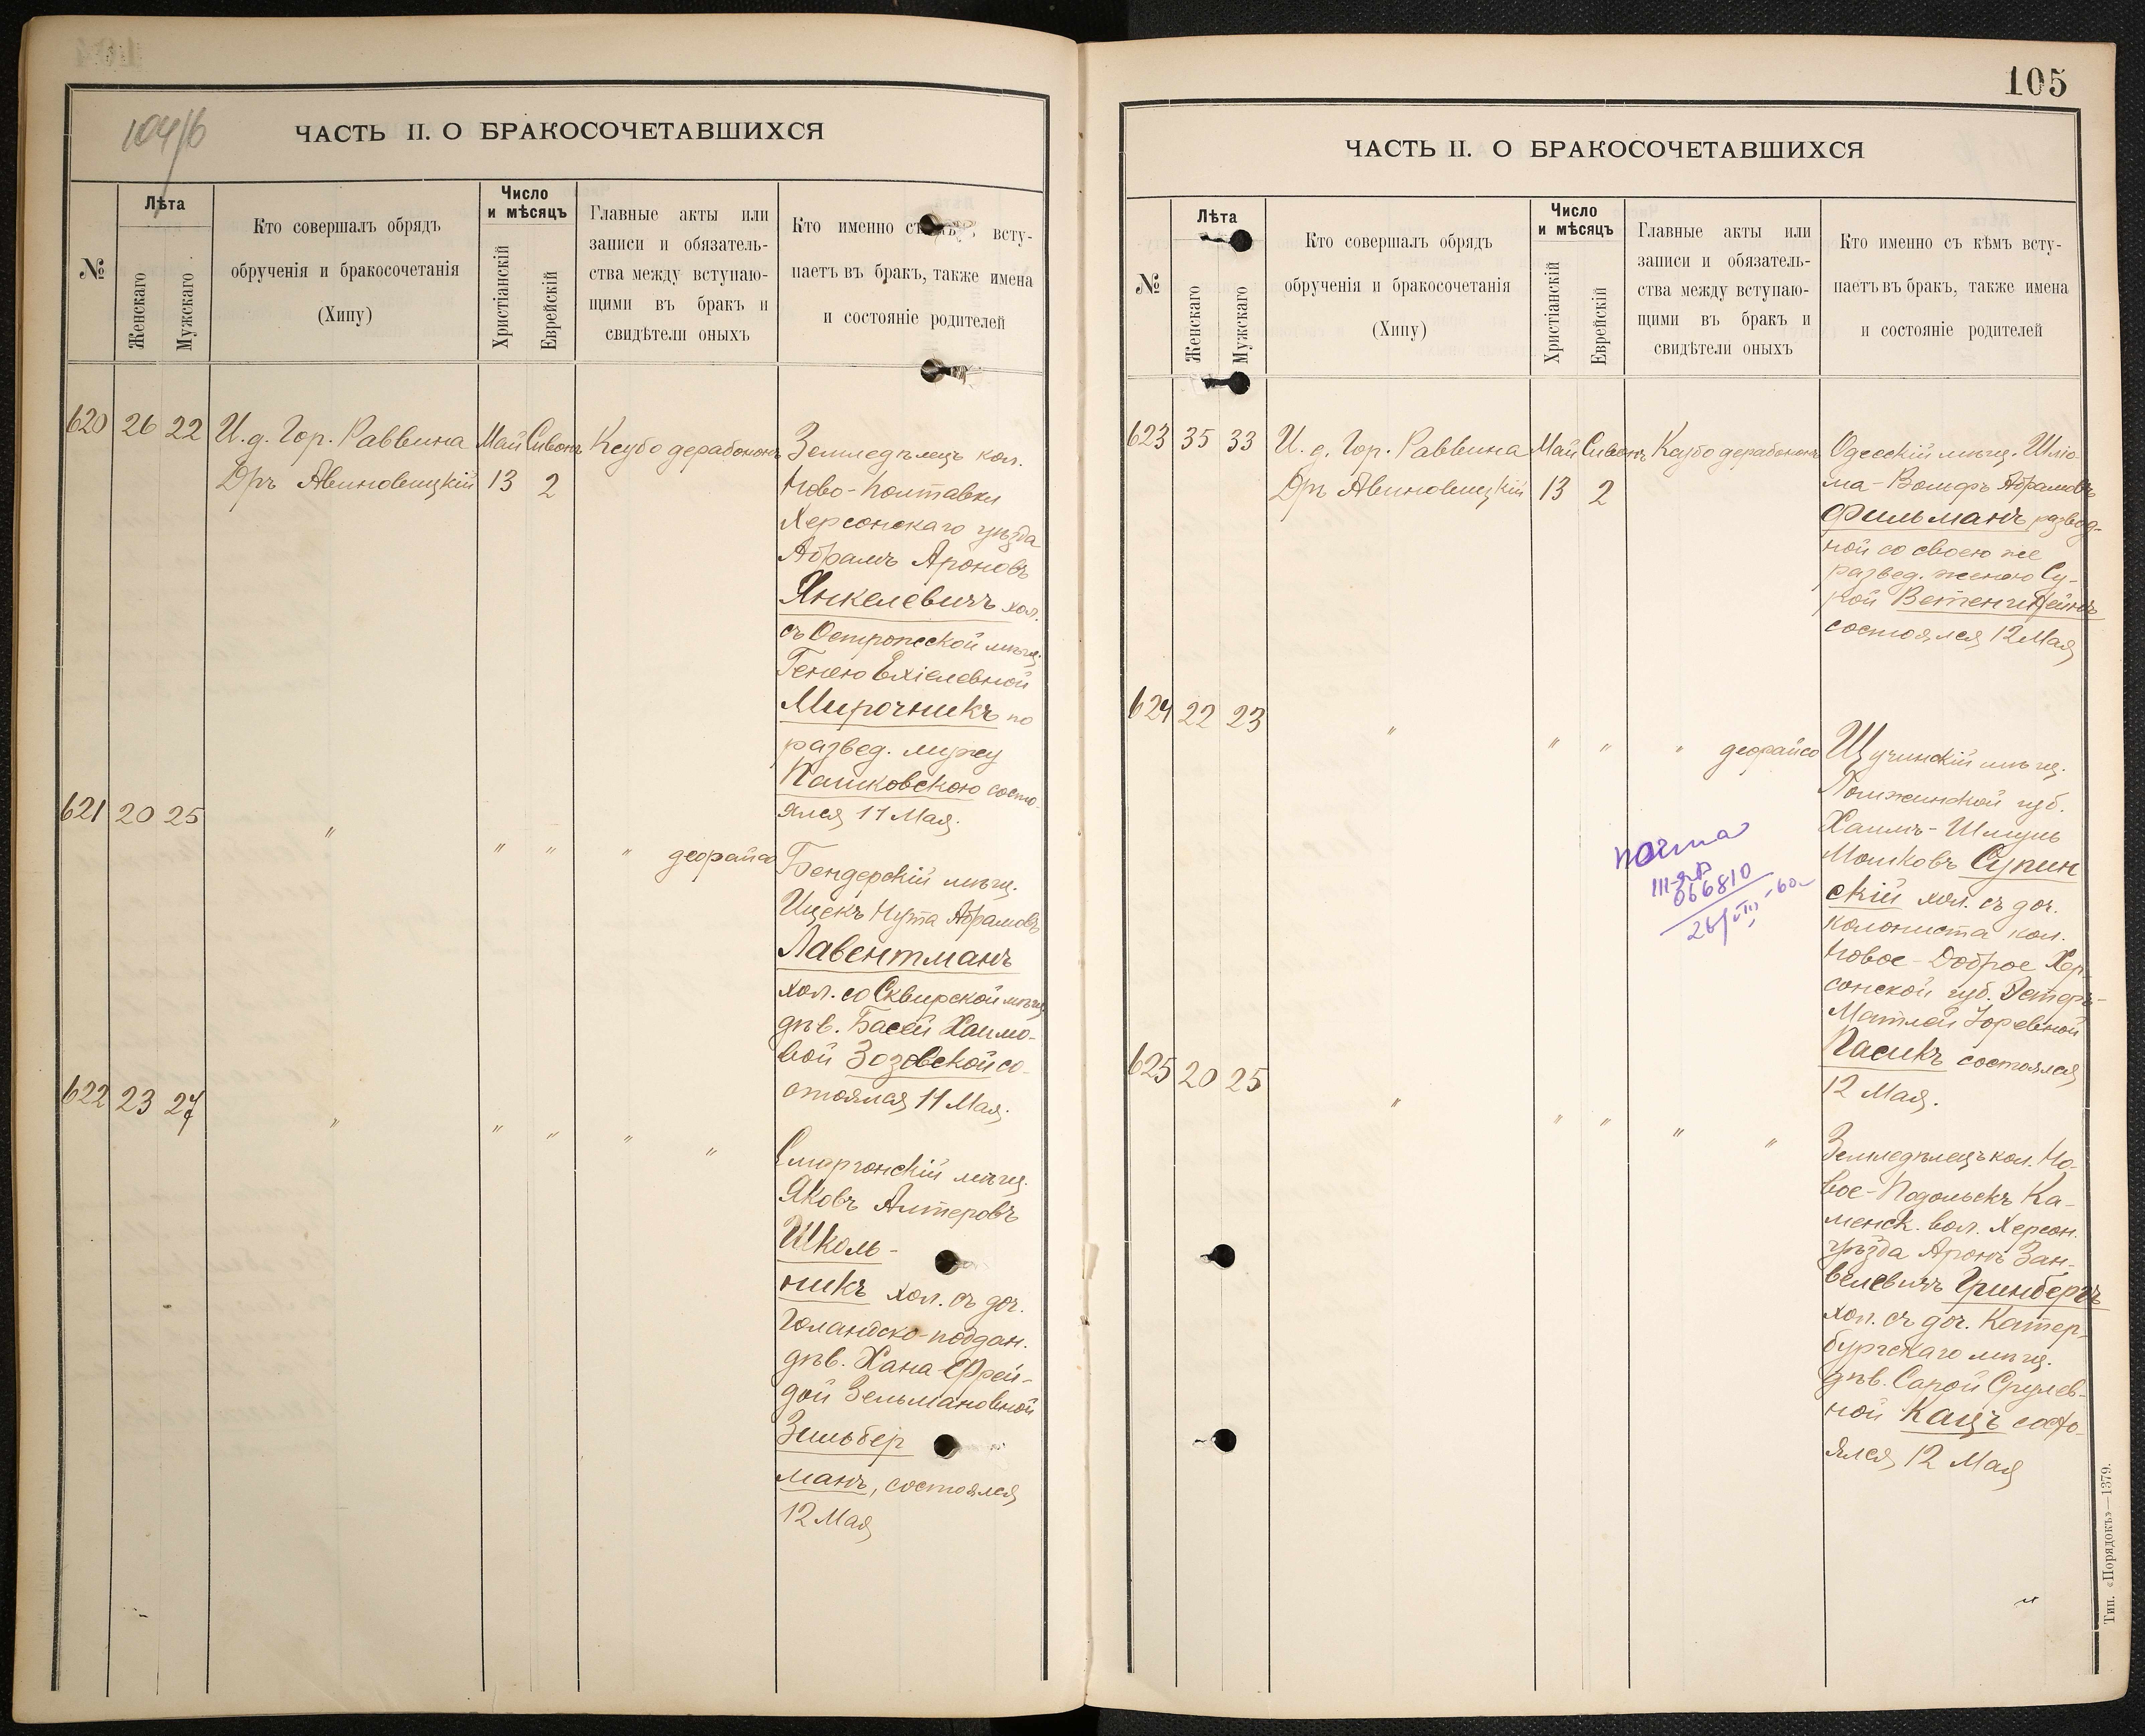 104/б
ЧАСТЬ II. О БРАКОСОЧЕТАВШИХСЯ
№
Лѣта
Женскаго
Мужскаго
Кто совершалъ обрядъ
обрученія и бракосочетанія
(Хипу)
Число
и мѣсяцъ
Христіанскій
Еврейскій
Главные акты или
записи и обязатель-
ства между вступаю-
щими въ бракъ и
свидѣтели оныхъ
Кто именно съ всту-
паетъ въ бракъ, также имена
и состояніе родителей
620 26 22 И. д. Гор. Раввина Май Сивонъ Кеубо дерабононъ
Дръ Авиновицкій 13 2
Земледѣлецъ кол.
Ново-Полтавки
Херсонскаго уѣзда
Абрамъ Ароновъ
Янкелевичъ хол.
съ Остропеской мѣщ.
Генею Ехіелевной
Мирочникъ по
развед. мужу
Пашковскою состо-
ялся 11 Мая.
621 20 25 " " " " деорайсо
Бендерскій мѣщ.
Ицекъ Нута Абрамовъ
Лавентманъ
хол. со Сквирской мѣщ.
дѣв. Басей Хаимо-
вой Зозовской со-
стоялся 11 Мая.
622 23 27 " " " " "
Сморгонскій мѣщ.
Яковъ Алтеровъ
Школь-
никъ хол. съ доч.
Голандско-поддан.
дѣв. Хана-Фрей-
дой Зельмановной
Зильбер
манъ, состоялся
12 Мая
105
ЧАСТЬ II. О БРАКОСОЧЕТАВШИХСЯ
№
Лѣта
Женскаго
Мужскаго
Кто совершалъ обрядъ
обрученія и бракосочетанія
(Хипу)
Число
и мѣсяцъ
Христіанскій
Еврейскій
Главные акты или
записи и обязатель-
ства между вступаю-
щими въ бракъ и
свидѣтели оныхъ
Кто именно съ кѣмъ всту-
паетъ въ бракъ, также имена
и состояніе родителей
623 35 33 И. д. Гор. Раввина Май Сивонъ Каубо дерабононъ
Дръ Авиновицкій 13 2
Одесскій мѣщ. Шліо-
ма-Вольфъ Абрамовъ
Фильманъ развед-
ной со своею же
развед. женою Су-
рой Ветенштейнъ
состоялся 12 Мая
624 22 23 " " " " деорайсо
Щучинскій мѣщ.
Ломжинской губ.
Хаимъ-Шмуль
Мошковъ Супин
скій хол. съ доч.
колониста кол.
Новое-Доброе Хер-
сонской губ. Эстеръ-
Матлей Іоревной
Пасикъ состоялся
12 Мая.
почта
III-яР
066810
26/VIII-60
625 20 25 " " " " "
Земледѣлецъ кол. Но-
вое-Подольскъ Ка-
менск. вол. Херсон.
уѣзда Аронъ Зан-
велевичъ Гринбергъ
хол. съ доч. Катер-
бургскаго мѣщ.
дѣв. Сарой Срулев-
ной Кацъ состо-
ялся 12 Мая
Тип. «Порядокъ»—1379.